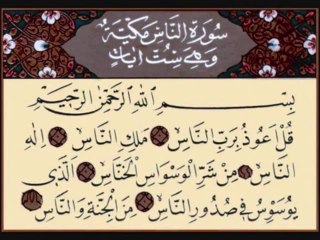 سُورَةُ النَّاسِ مَكِّيَّةٌ
وَهِيَ سِتُّ آيَاتٍ
بِسْمِ اللَّهِ الرَّحْمَٰنِ الرَّحِيمِ
قُلْ أَعُوذُ بِرَبِّ النَّاسِ مَلِكِ النَّاسِ إِلَٰهِ
النَّاسِ مِنْ شَرِّ الْوَسْوَاسِ الْخَنَّاسِ الَّذِي
يُوَسْوِسُ فِي صُدُورِ النَّاسِ مِنَ الْجِنَّةِ وَالنَّاسِ